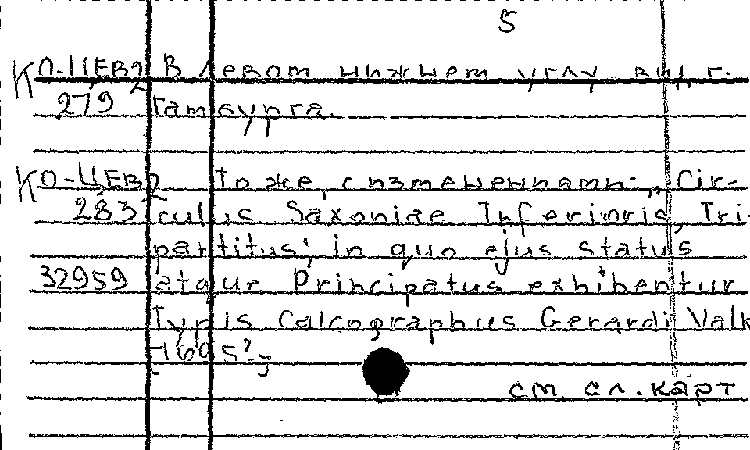 5
КО-ЦЕВ2 В левом нижнем углу вид г.
279 Гамбурга.
КО-ЦЕВ2 То же, с изменениями: „Cir-
283 culus Saxoniae Inferioris, Tri-
partitus; in quo ejus status
32959 atque Principatus exhibentur
Typis Calcographus Gerardi Valk
[1695?]
см. сл. карт